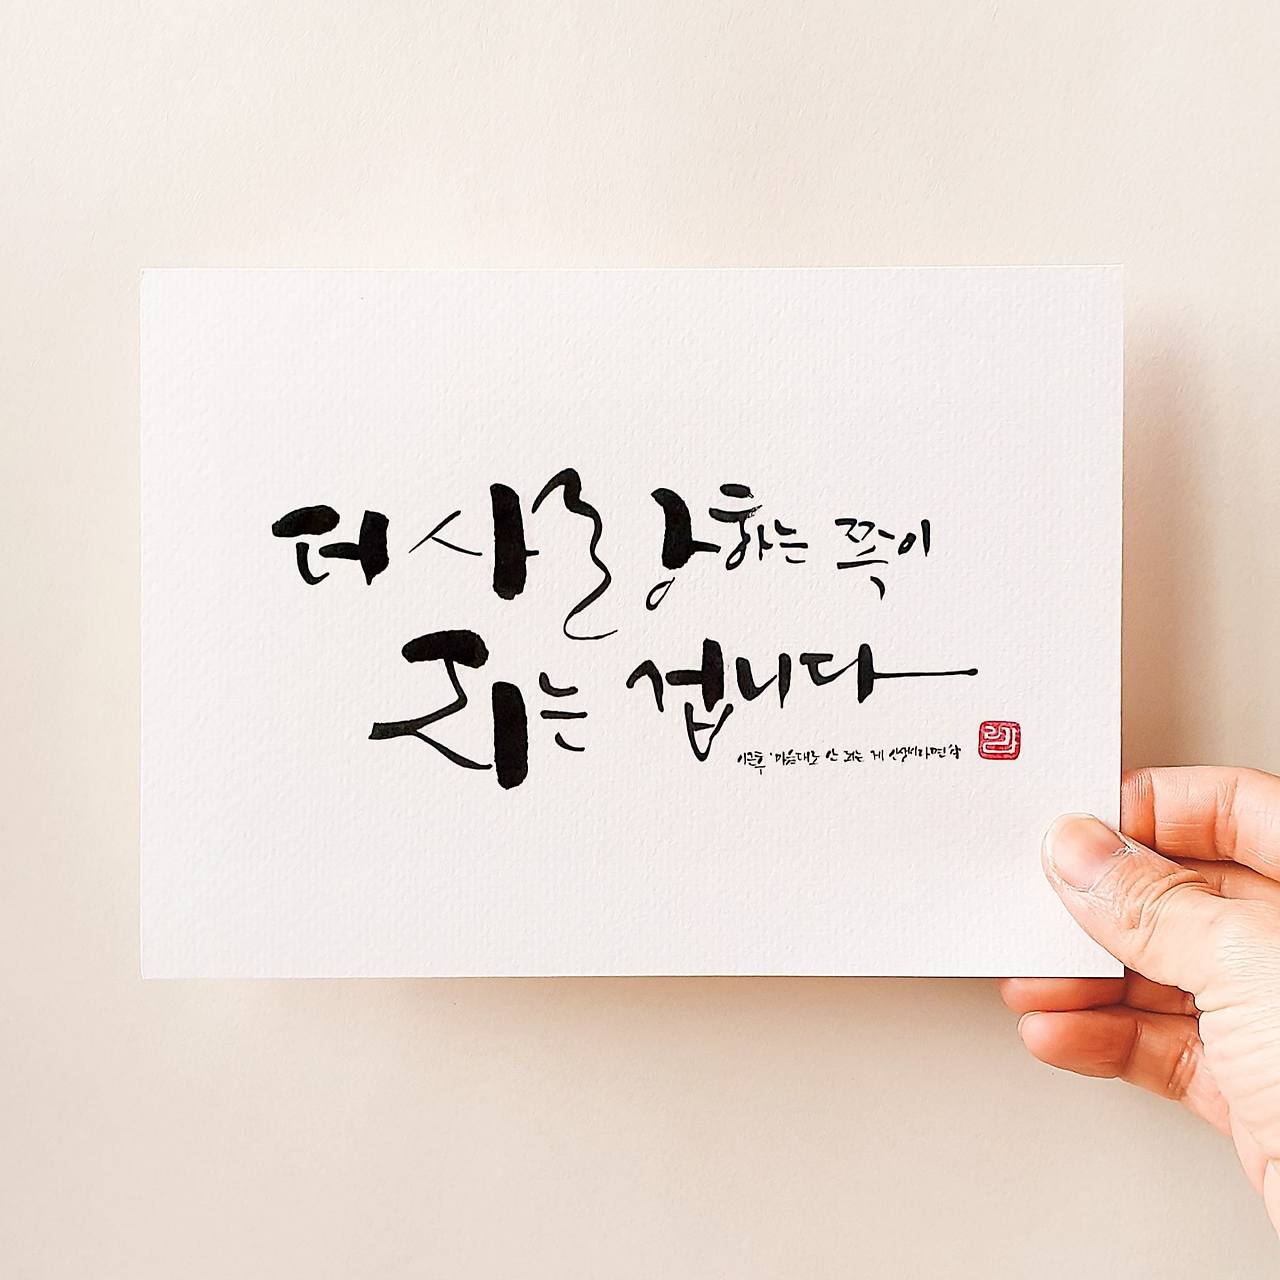 더 사랑하는 쪽이
지는 겁니다
이근후 '마음대로 안 되는 게 인생이라면' 中